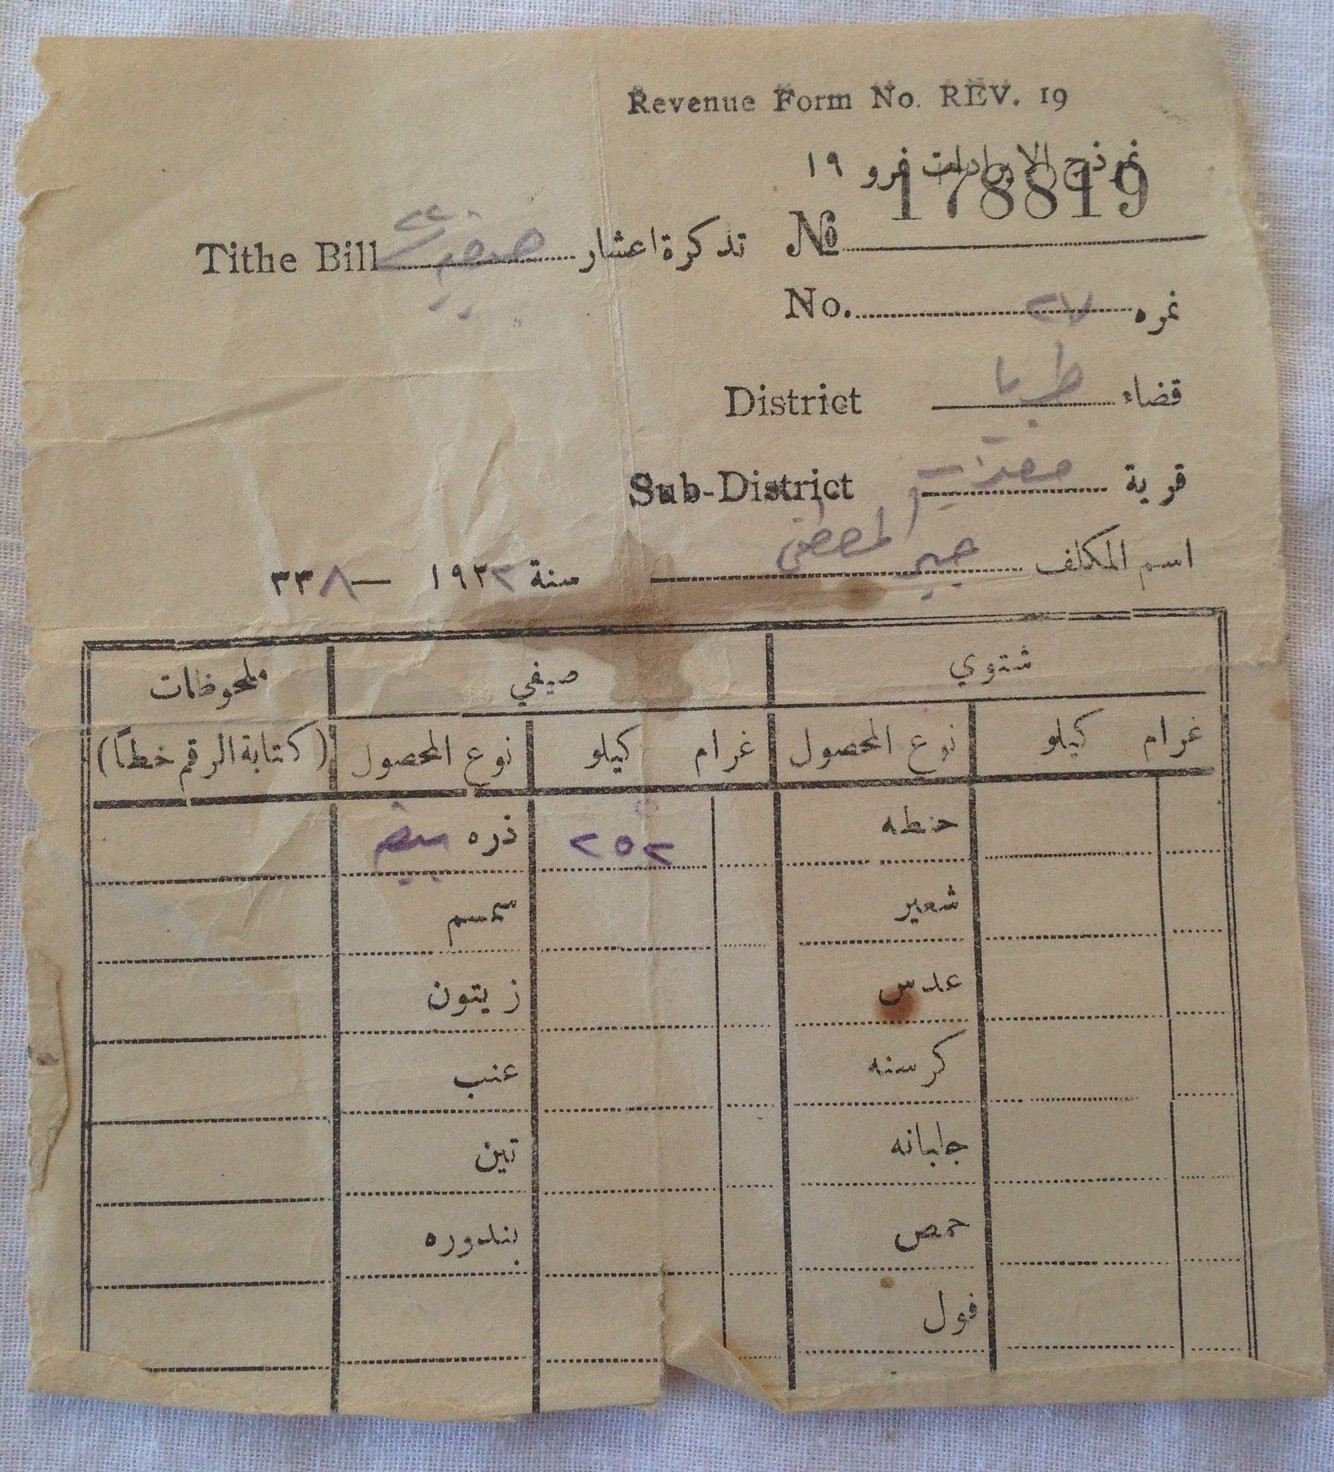 Revenue Form No. REV. 19
نموذج الايرادات نمرو ١٩
№ 178819
Tithe Bill تذكرة اعشار صيفي
No. ٢٧ نمره
District طبريا قضاء
Sub-District قرية
اسم المكلف
سنة ١٩٢٢ — ٣٣٨
شتوي صيفي ملحوظات
غرام كيلو نوع المحصول غرام كيلو نوع المحصول (كتابة الرقم خطاً)
حنطه ٢٥٢ ذره بيضا
شعير سمسم
عدس زيتون
كرسنه عنب
جلبانه تين
حمص بندوره
فول